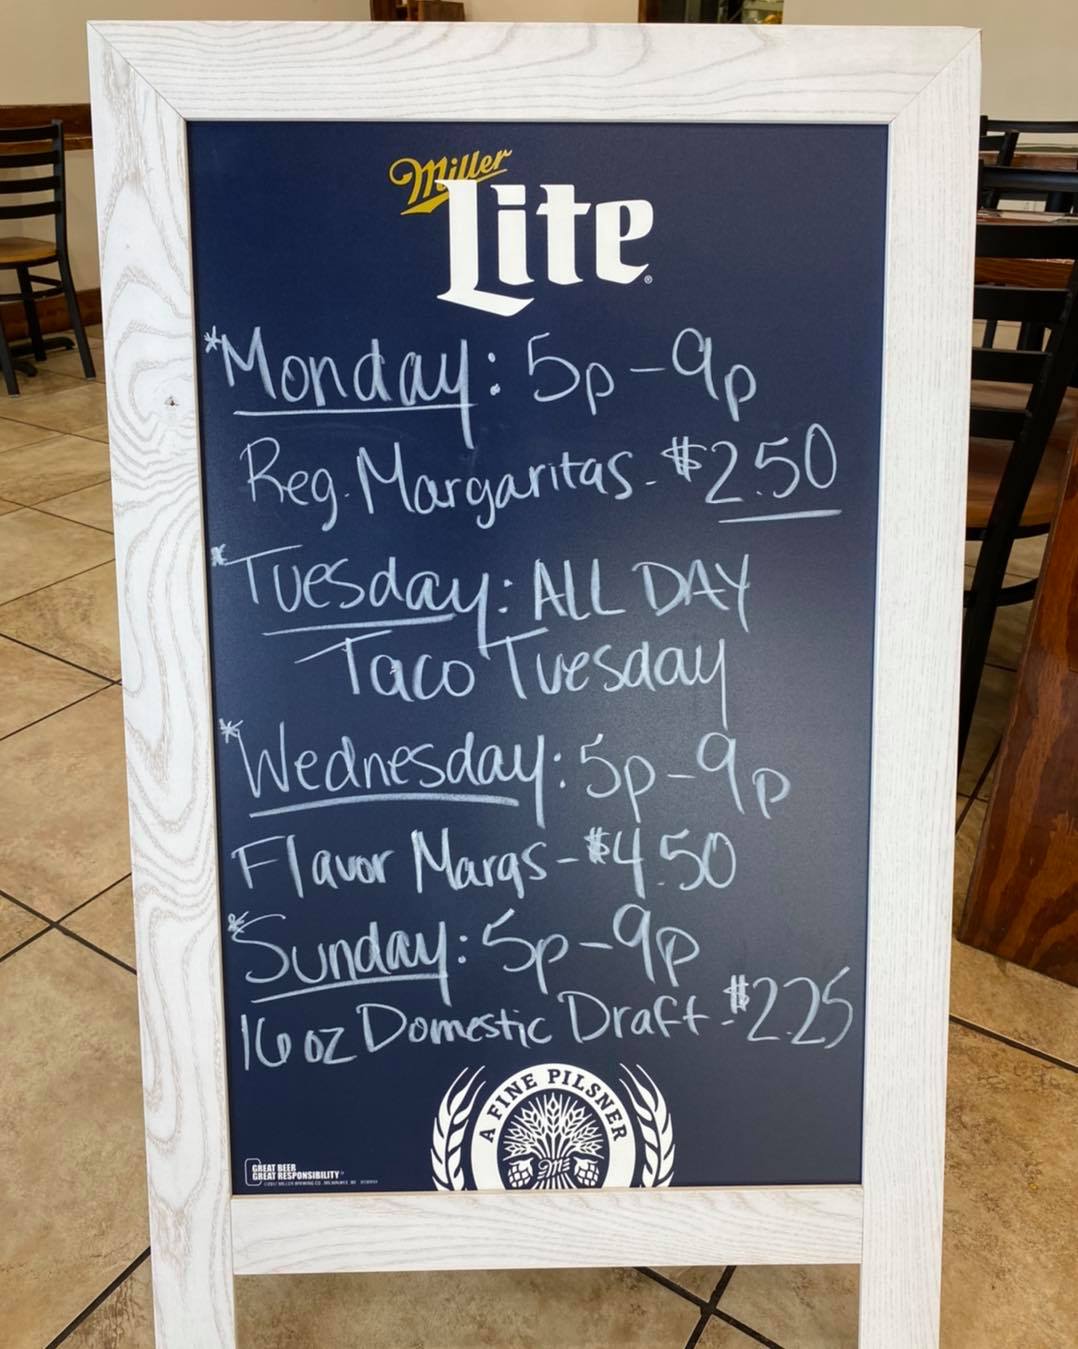 Miller
Lite
*Monday: 5p-9p
Reg. Margaritas - $2.50
*Tuesday: ALL DAY
Taco Tuesday
*Wednesday: 5p-9p
Flavor Margs - $4.50
*Sunday: 5p-9p
16 oz Domestic Draft - $2.25
A FINE PILSNER
M
GREAT BEER
GREAT RESPONSIBILITY